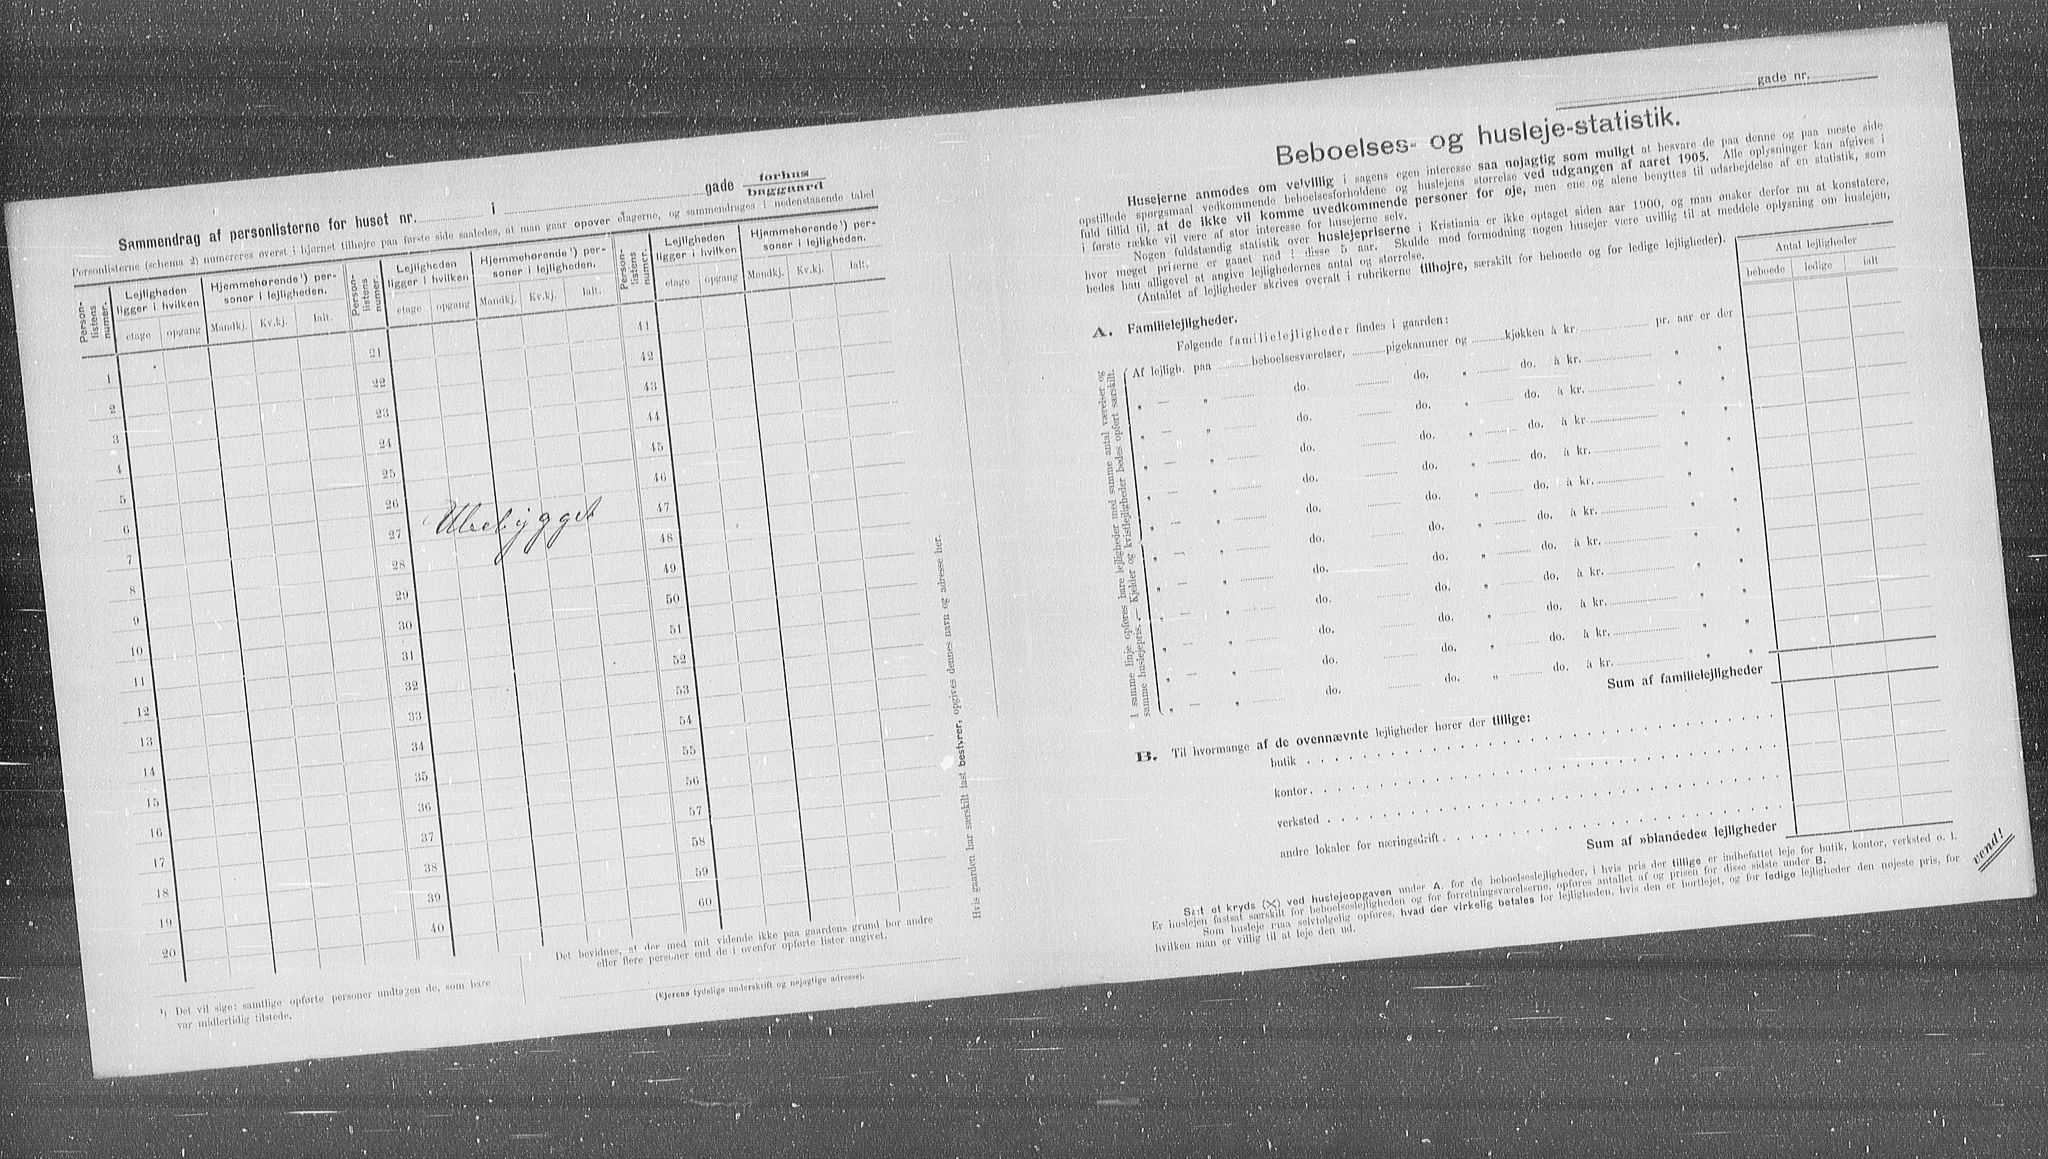 Sammendrag af personlisterne for huset nr. i gade forhus
baggaard
Personlisterne (schema 2) numereres øverst i hjørnet tilhøjre paa første side saaledes, at man gaar opover etagerne, og sammendrages i nedenstaaende tabel
Person-
listens
numer.
Lejligheden
ligger i hvilken
etage opgang
Hjemmehørende ¹) per-
soner i lejligheden.
Mandkj. Kv.kj. Ialt.
Person-
listens
numer.
Lejligheden
ligger i hvilken
etage opgang
Hjemmehørende ¹) per-
soner i lejligheden.
Mandkj. Kv.kj. Ialt.
Person-
listens
numer.
Lejligheden
ligger i hvilken
etage opgang
Hjemmehørende ¹) per-
soner i lejligheden.
Mandkj. Kv.kj. Ialt.
1 21 41
2 22 42
3 23 43
4 24 44
5 25 45
6 26 46
7 27 47
8 28 48
9 29 49
10 30 50
11 31 51
12 32 52
13 33 53
14 34 54
15 35 55
16 36 56
17 37 57
18 38 58
19 39 59
20 40 60
Ubebygget
¹) Det vil sige: samtlige opførte personer undtagen de, som bare
var midlertidig tilstede.
Det bevidnes, at der med mit vidende ikke paa gaardens grund bor andre
eller flere personer end de i ovenfor opførte lister angivet.
(Ejerens tydelige underskrift og nøjagtige adresse).
Hvis gaarden har særskilt fast bestyrer, opgives dennes navn og adresse her.
gade nr.
Beboelses- og husleje-statistik.
Husejerne anmodes om velvillig i sagens egen interesse saa nøjagtig som muligt at besvare de paa denne og paa næste side
opstillede spørgsmaal vedkommende beboelsesforholdene og huslejens størrelse ved udgangen af aaret 1905. Alle oplysninger kan afgives i
fuld tillid til, at de ikke vil komme uvedkommende personer for øje, men ene og alene benyttes til udarbejdelse af en statistik, som
i første række vil være af stor interesse for husejerne selv.
Nogen fuldstændig statistik over huslejepriserne i Kristiania er ikke optaget siden aar 1900, og man ønsker derfor nu at konstatere,
hvor meget priserne er gaaet ned i disse 5 aar. Skulde mod formodning nogen husejer være uvillig til at meddele oplysning om huslejen,
bedes han alligevel at angive lejlighedernes antal og størrelse.
(Antallet af lejligheder skrives overalt i rubrikerne tilhøjre, særskilt for beboede og for ledige lejligheder).
Antal lejligheder
beboede ledige ialt
A. Familielejligheder.
Følgende familielejligheder findes i gaarden:
Af lejligh. paa beboelsesværelser, pigekammer og kjøkken à kr. pr. aar er der
„ — „ do. do. „ do. à kr. „ „
„ — „ do. do. „ do. à kr. „ „
„ — „ do. do. „ do. à kr „ „
„ — „ do. do. „ do. à kr. „ „
„ — „ do. do. „ do. à kr. „ „
„ — „ do. do. „ do. à kr. „ „
„ — „ do. do. „ do. à kr. „ „
„ — „ do. do. „ do. à kr. „ „
„ — „ do. do. „ do. à kr. „ „
„ — „ do. do. „ do. à kr. „ „
„ — „ do. do. „ do. à kr. „ „
I samme linje opføres bare lejligheder med samme antal værelser og
samme huslejepris. — Kjelder og kvistlejligheder bedes opført særskilt.
Sum af familielejligheder
B. Til hvormange af de ovennævnte lejligheder hører der tillige:
butik
kontor
verksted
andre lokaler for næringsdrift
Sum af »blandede« lejligheder
Sæt et kryds (X) ved huslejeopgaven under A. for de beboelseslejligheder, i hvis pris der tillige er indbefattet leje for butik, kontor, verksted o. l.
Er huslejen fastsat særskilt for beboelseslejligheden og for forretningsværelserne, opføres antallet af og prisen for disse sidste under B.
Som husleje maa selvfølgelig opføres, hvad der virkelig betales for lejligheden, hvis den er bortlejet, og for ledige lejligheder den nøjeste pris, for
hvilken man er villig til at leje den ud.
vend!